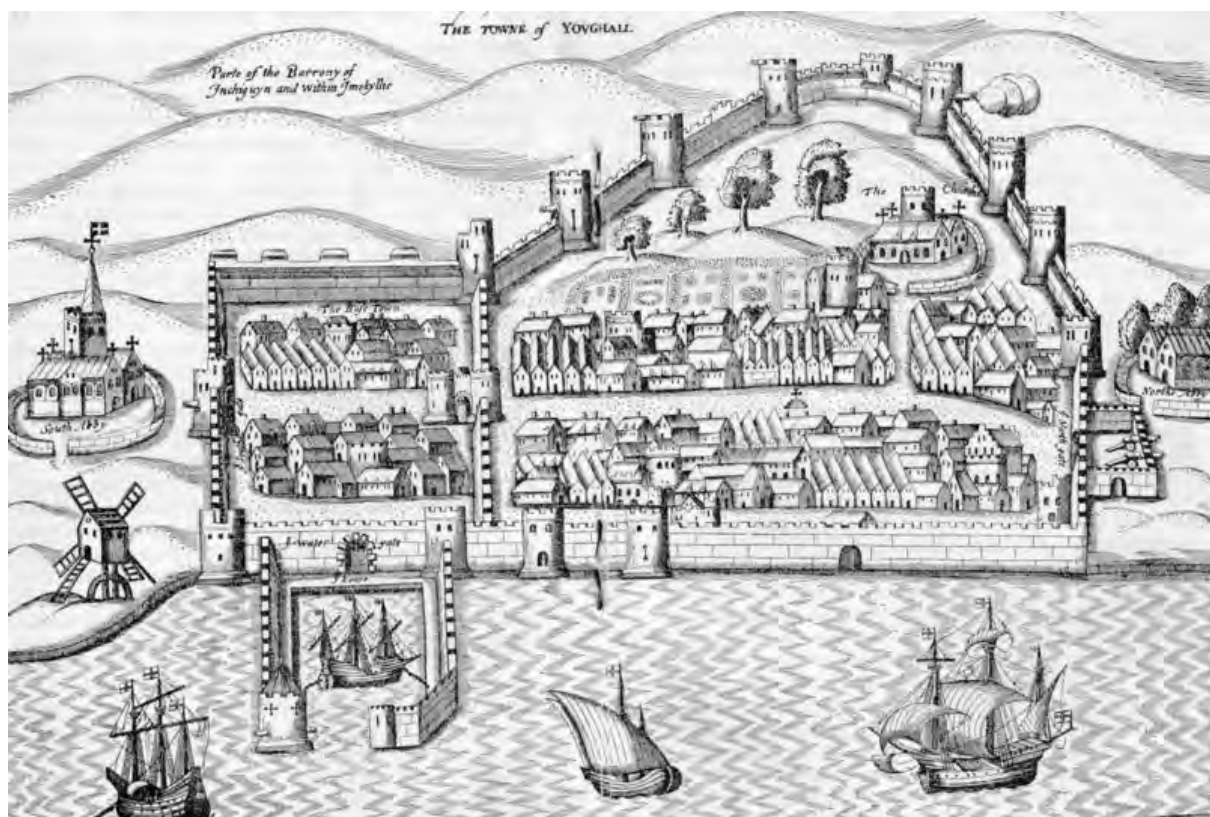 THE TOWNE of YOVGHALL
Parte of the Barrony of
Inchiguyn and within Imokyllie
The Church
The Base Town
South Abby
Northe Abby
water gate